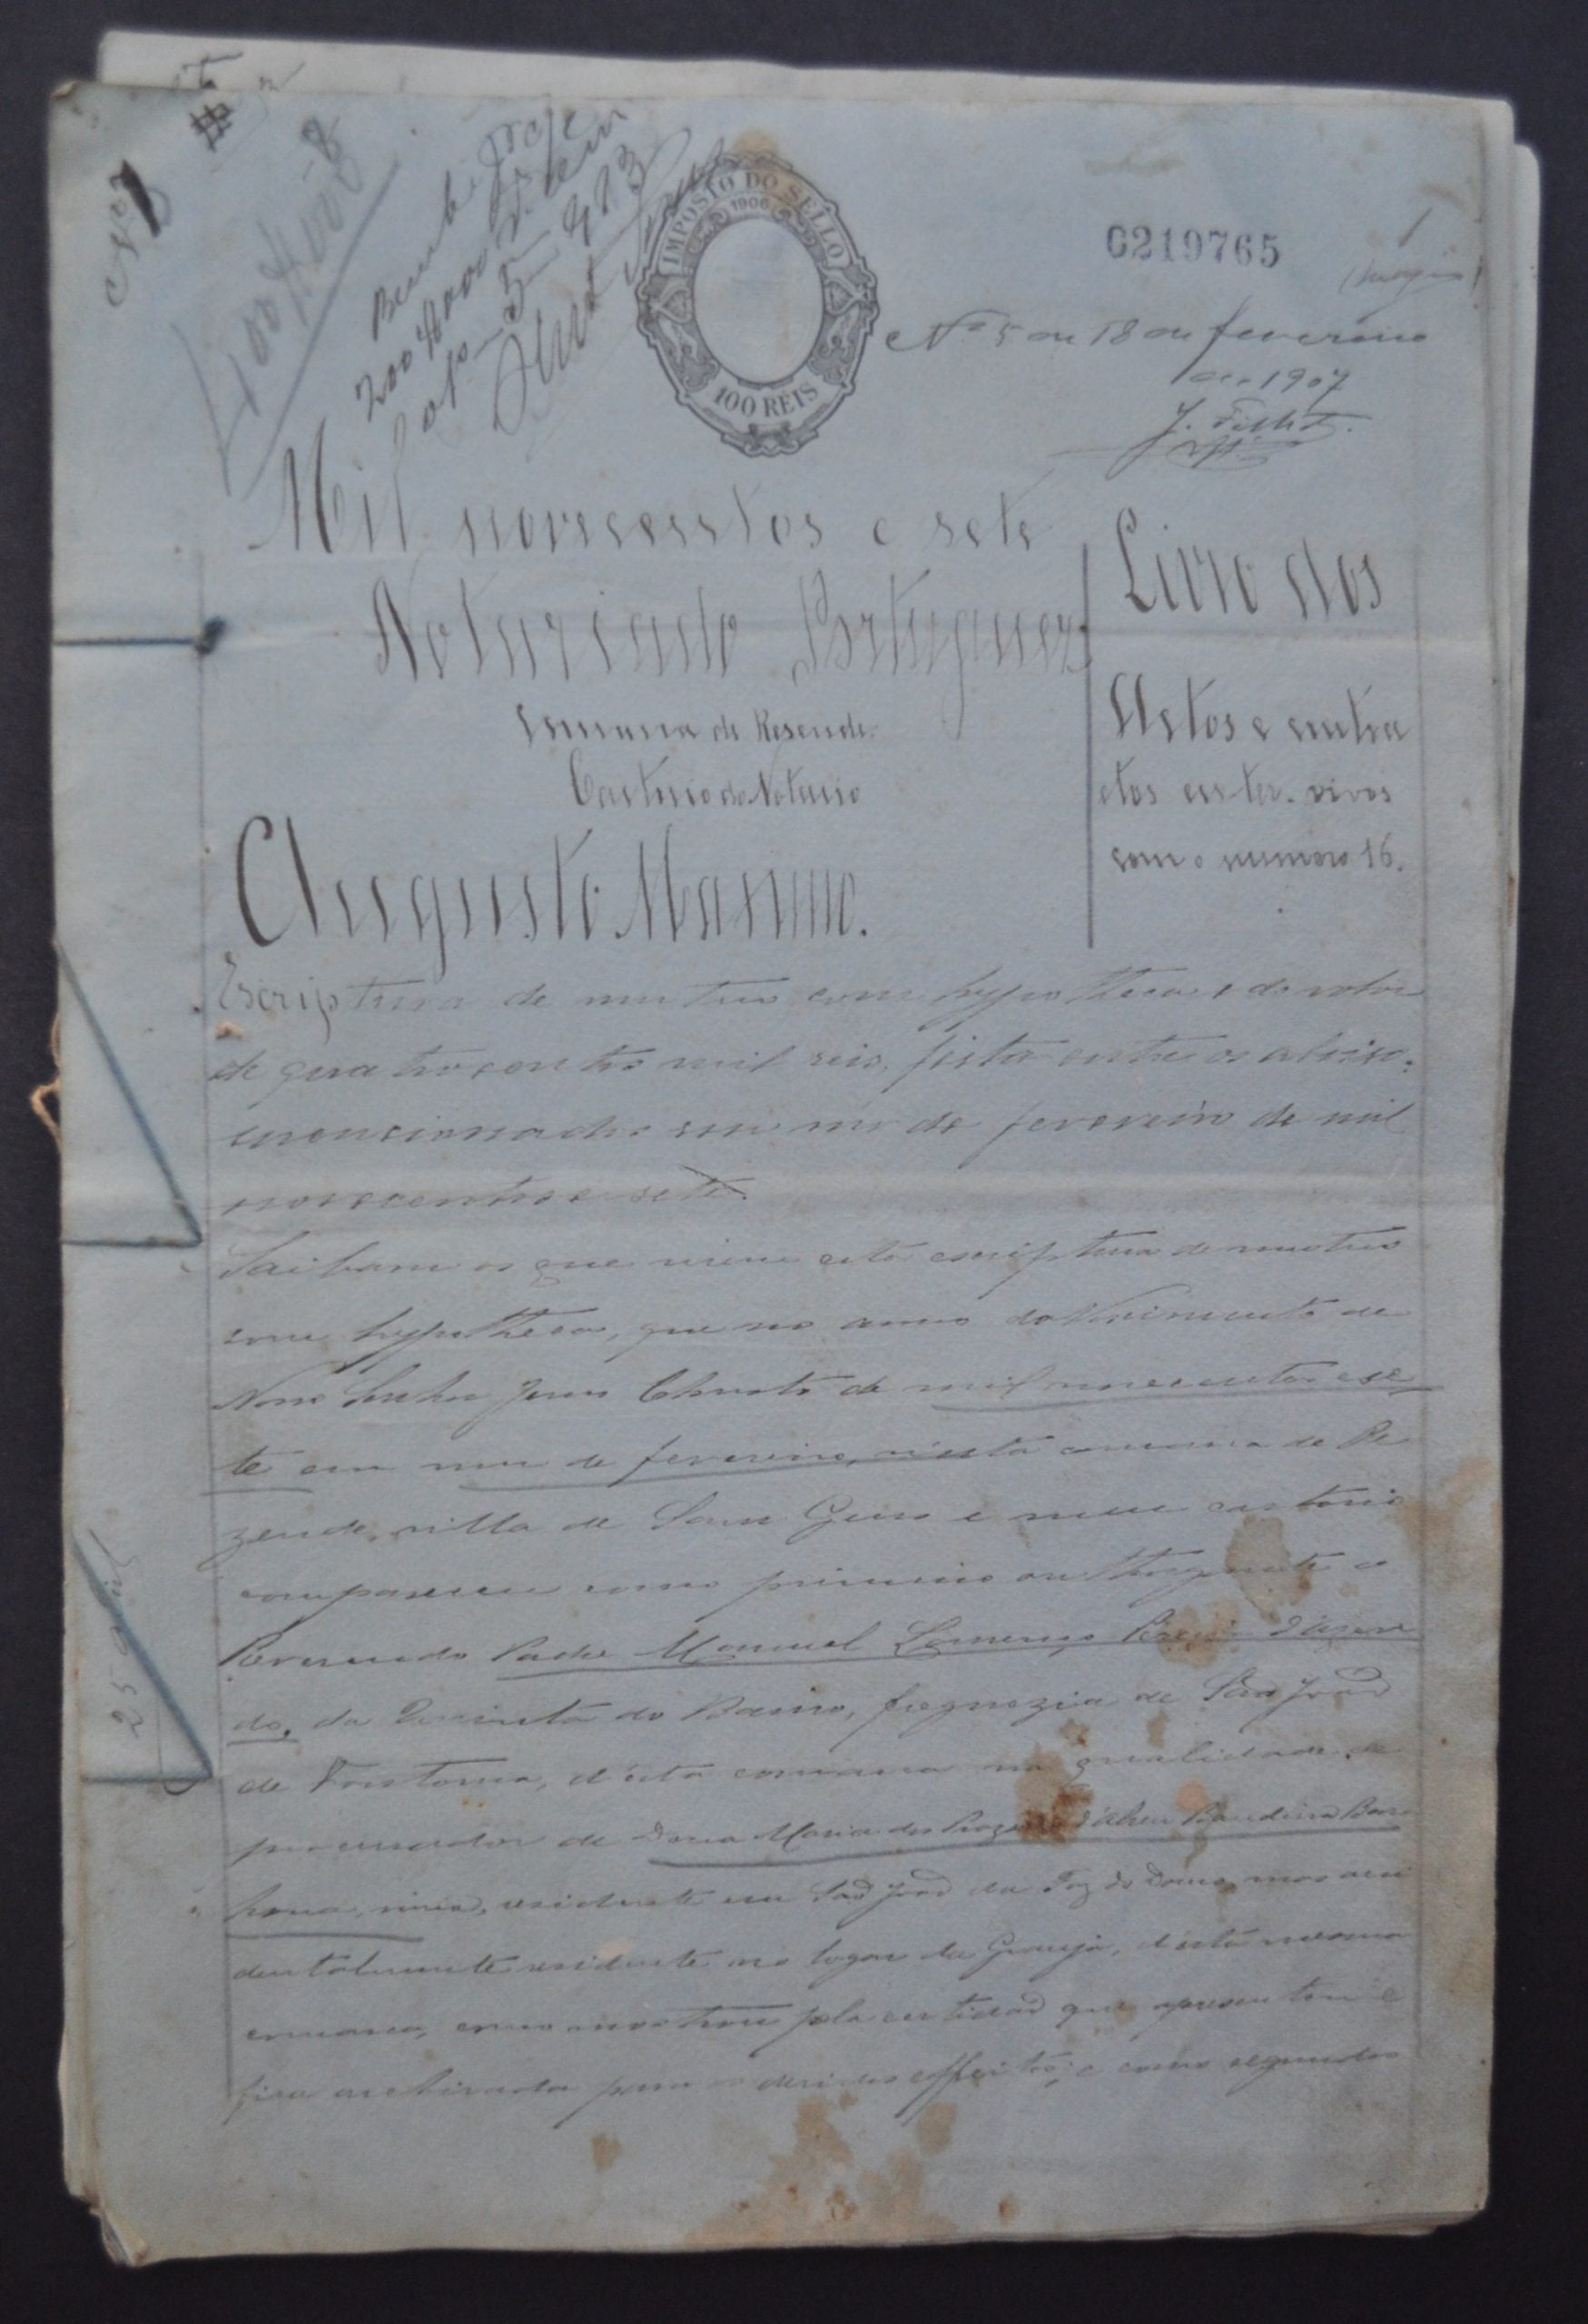 Nº 1
400$000
Recebi hoje
200$000 reis em
5 913
IMPOSTO DO SELLO
1906
100 REIS
G219765
1
Nº 5 em 18 de fevereiro
de 1907
J. Filho
Mil novecentos e sete
Notariado Portuguez
Comarca de Resende.
Cartorio do Notario
Augusto Maximo.
Livro dos
Actos e contra
ctos entre vivos
com o numero 16.
Escriptura de mutuo com hypotheca, do valor
de quatrocentos mil reis, feita entre os abaixo
mencionados em um de fevereiro de mil
novecentos e sete.
Saibam os que virem esta escriptura de mutuo
com hypotheca, que no anno do Nascimento de
Nosso Senhor Jesus Christo de mil novecentos e se-
te em um de fevereiro, n'esta comarca de Re
zende, villa de Sam Gens e meu cartorio
compareceu como primeiro outhorgante o
Reverendo Padre Manuel Lourenço Pereira d'Azeve
do, da Quinta do Bairro, freguezia de São João
de Fontoura, d'esta comarca na qualidade de
procurador de Dona Maria dos Prazeres d'Abreu Bandeira Bar
bosa, viuva, residente em São João da Foz do Douro, mas acci
dentalmente residente no logar da Granja, d'esta mesma
comarca, como mostrou pela certidão que apresentou e
fica archivada para os devidos effeitos; e como segundos